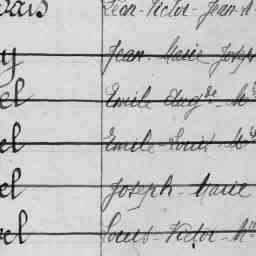 ais Léon-Victor-Jean-M
y Jean-Marie Joseph
el Emile Augte M
el Emile-Louis-M
el Joseph-Marie
el Louis-Victor-M